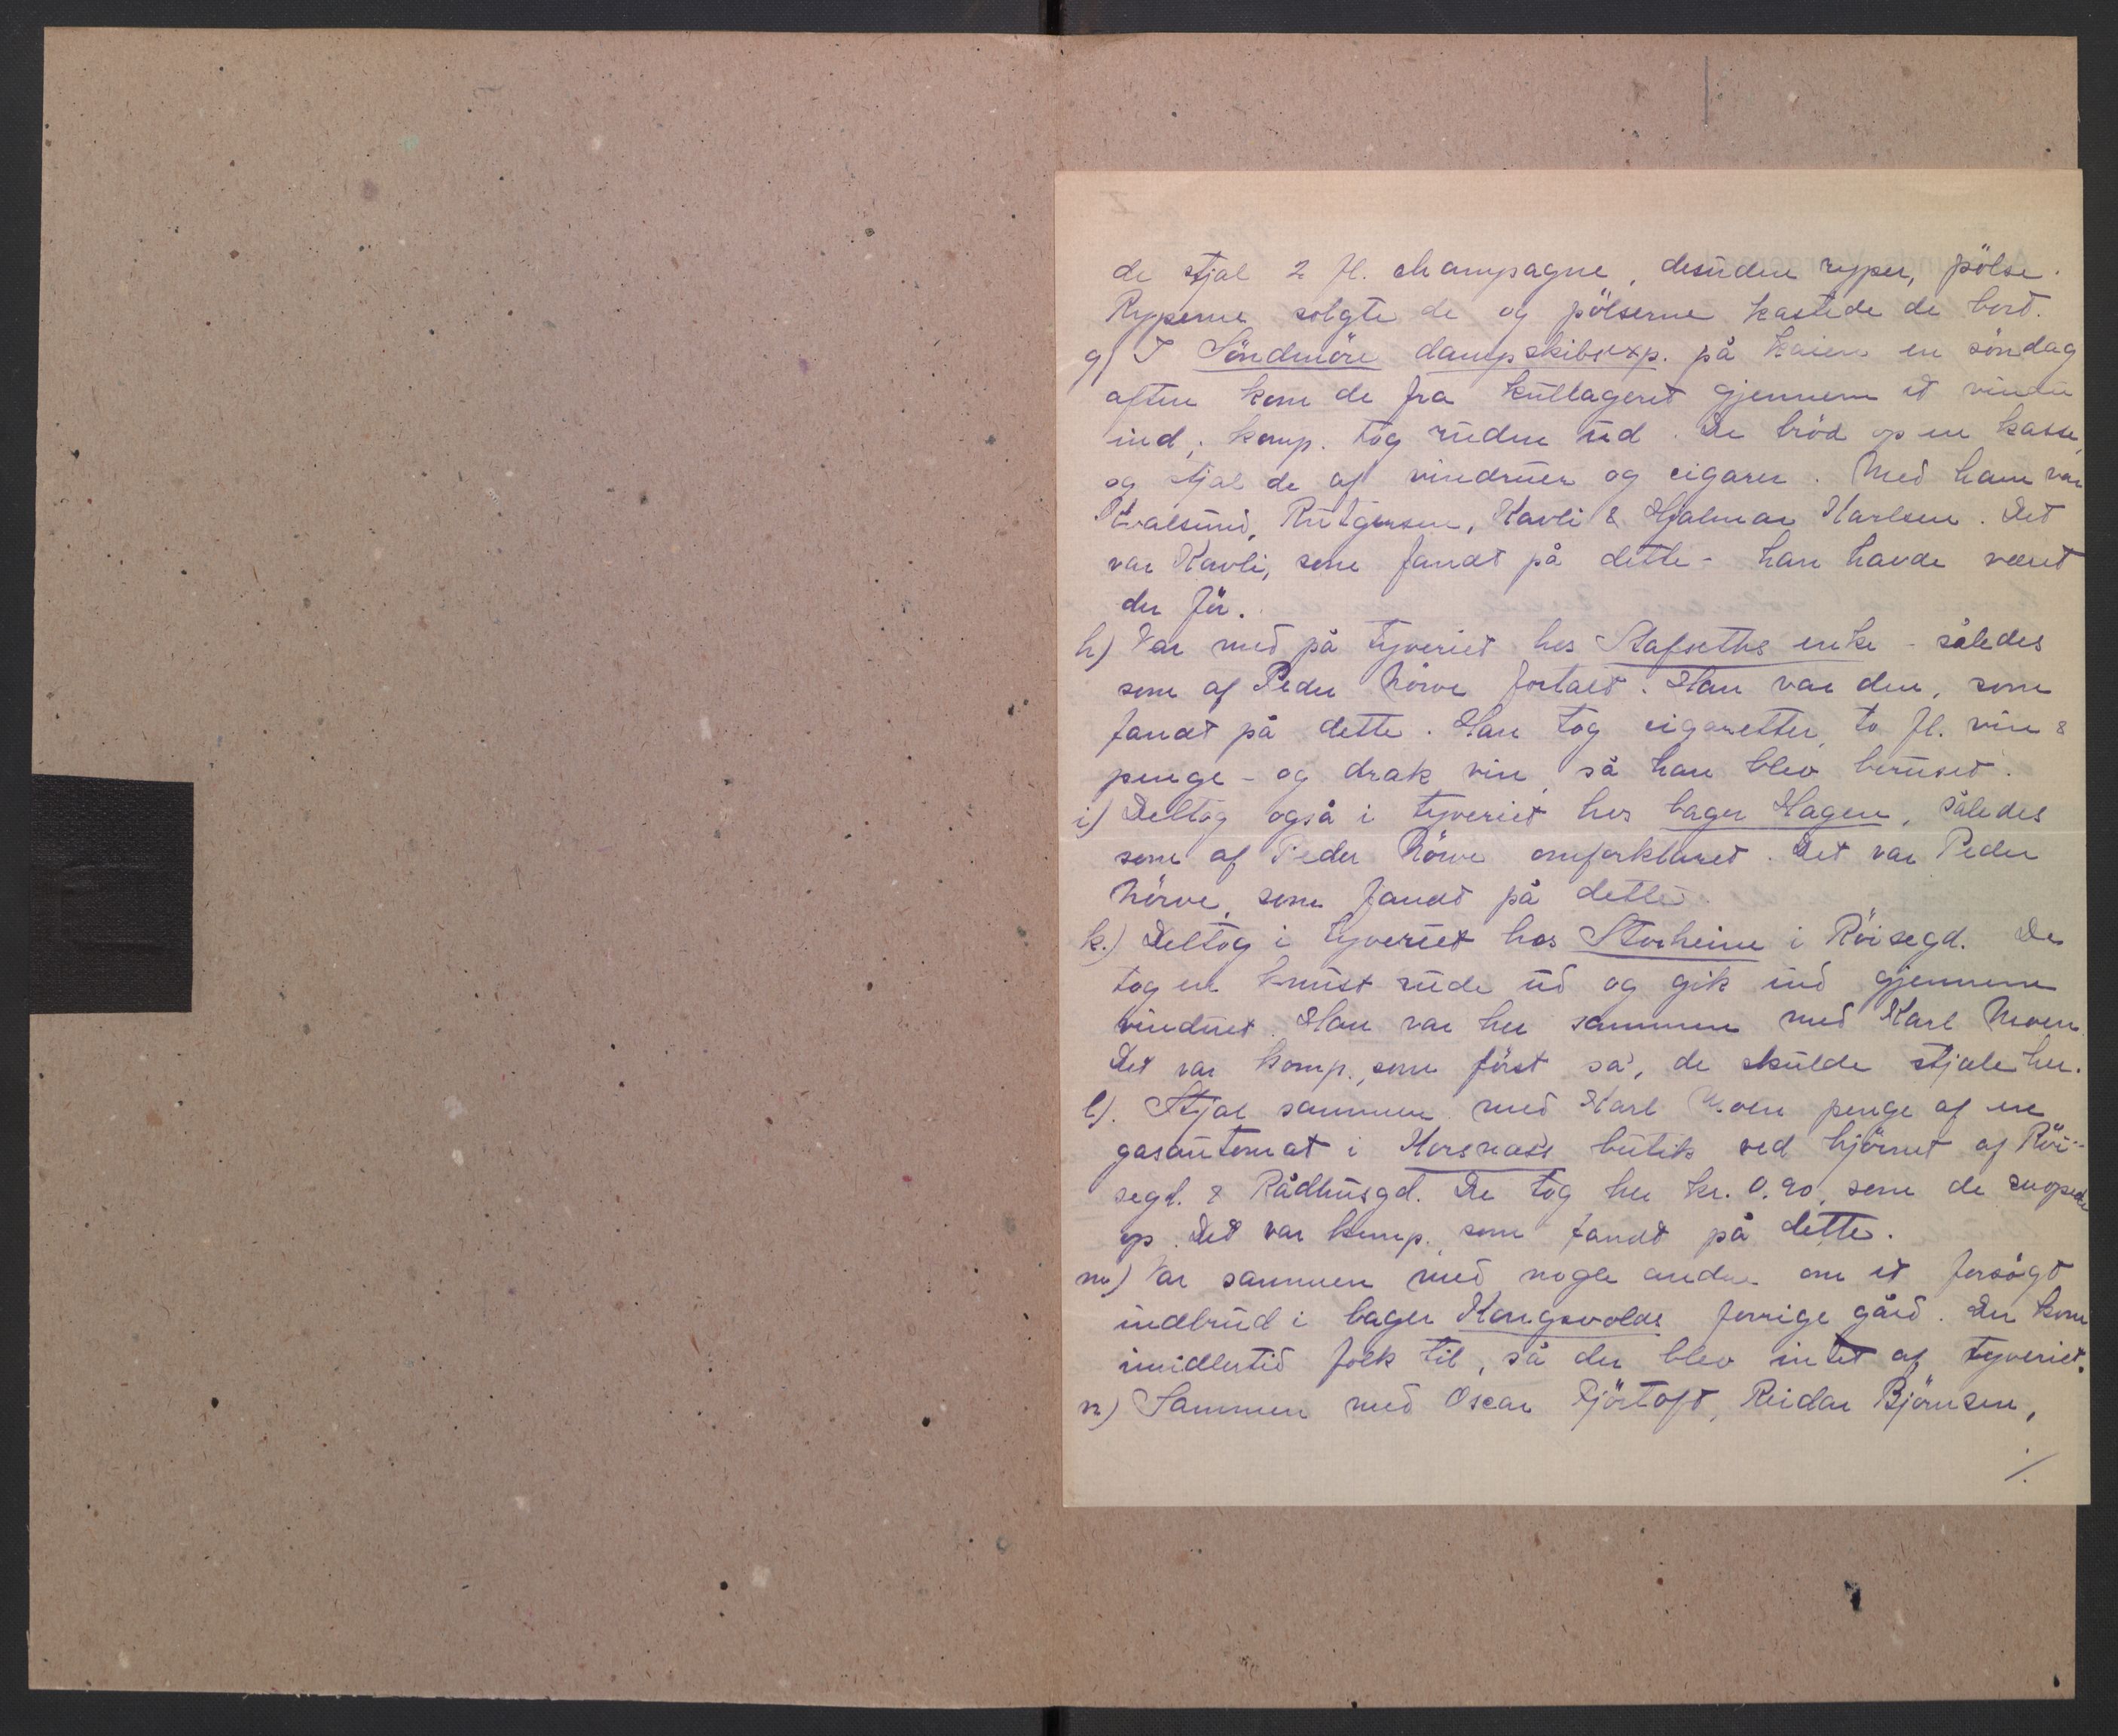 de stjal 2 fl. champagne, desuden ryper, pölse.
Ryperne solgte de og pölserne kastede de bort.
g) I Söndmöre dampskibsexp. på kaien en söndag
aften kom de fra kullageret gjennem et vindu
ind; komp. tog ruden ud. De bröd op en kasse,
og stjal de af vindruer og cigarer. Med ham var
Hvalsund, Rutgersen, Kavli & Hjalmar Karlsen. Det
var Kavli, som fandt på dette - han havde været
der för.
h) Var med på tyveriet hos Stafseths enke - således
som af Peder Nörve fortalt. Han var den, som
fandt på dette. Han tog cigaretter, to fl. vin &
penge - og drak vin, så han blev beruset.
i) Deltog også i tyveriet hos bager Hagen, således
som af Peder Nörve omforklaret. Det var Peder
Nörve, som fandt på dette.
k.) Deltog i tyveriet hos Storheim i Röisegd. De
tog en knust rude ud og gik ind gjennem
vinduet. Han var her sammen med Karl Moen.
Det var komp., som först sa', de skulde stjæle her.
l). Stjal sammen med Karl Moen penge af en
gasautomat i Korsnæss butik ved hjörnet af Röi-
segd. & Rådhusgd. De tog her kr. 0.90, som de snopede
op. Det var komp. som fandt på dette.
m) Var sammen med nogle andre om et forsögt
indbrud i bager Kongsvolds forrige gård. Der kom
imidlertid folk til, så der blev intet af tyveriet.
n) Sammen med Oscar Fjörtoft, Reidar Björnsen,
./.